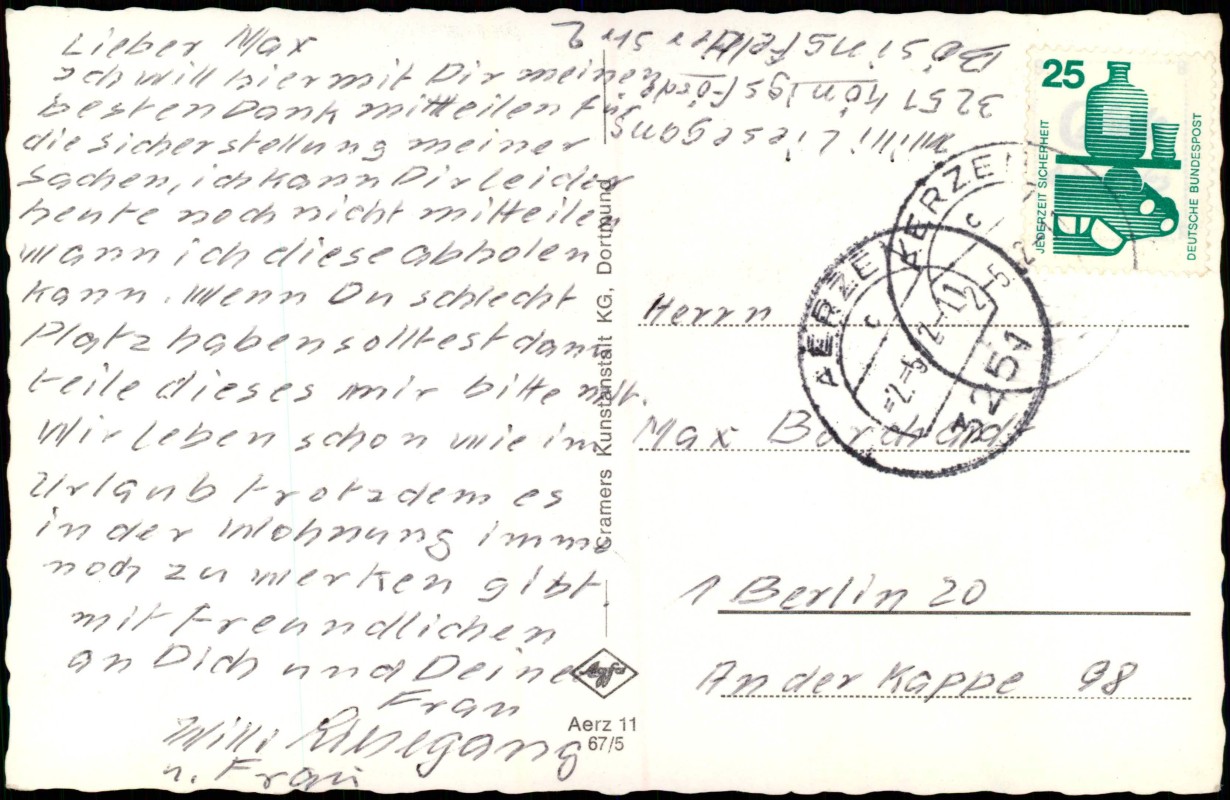 Lieber Max
ich will hiermit Dir meinen
besten Dank mitteilen für
die sicherstellung meiner
Sachen, ich kann Dir leider
heute noch nicht mitteilen
wann ich diese abholen
kann. Wenn Du schlecht
Platz haben solltest dann
teile dieses mir bitte mit.
Wir leben schon wie im
Urlaub trotzdem es
in der Wohnung immer
noch zu werken gibt.
mit freundlichen
an Dich und Deine
Frau
Willi
u. Frau
Willi Liesegang
3251 Königsförde
Bösingfelder Str 2
Cramers Kunstanstalt KG, Dortmund
Agfa
Aerz 11
67/5
25
JEDERZEIT SICHERHEIT
DEUTSCHE BUNDESPOST
AERZEN
c
AERZEN
c
-2.-5.
3251
Herrn
Max
1 Berlin 20
An der Kappe 98